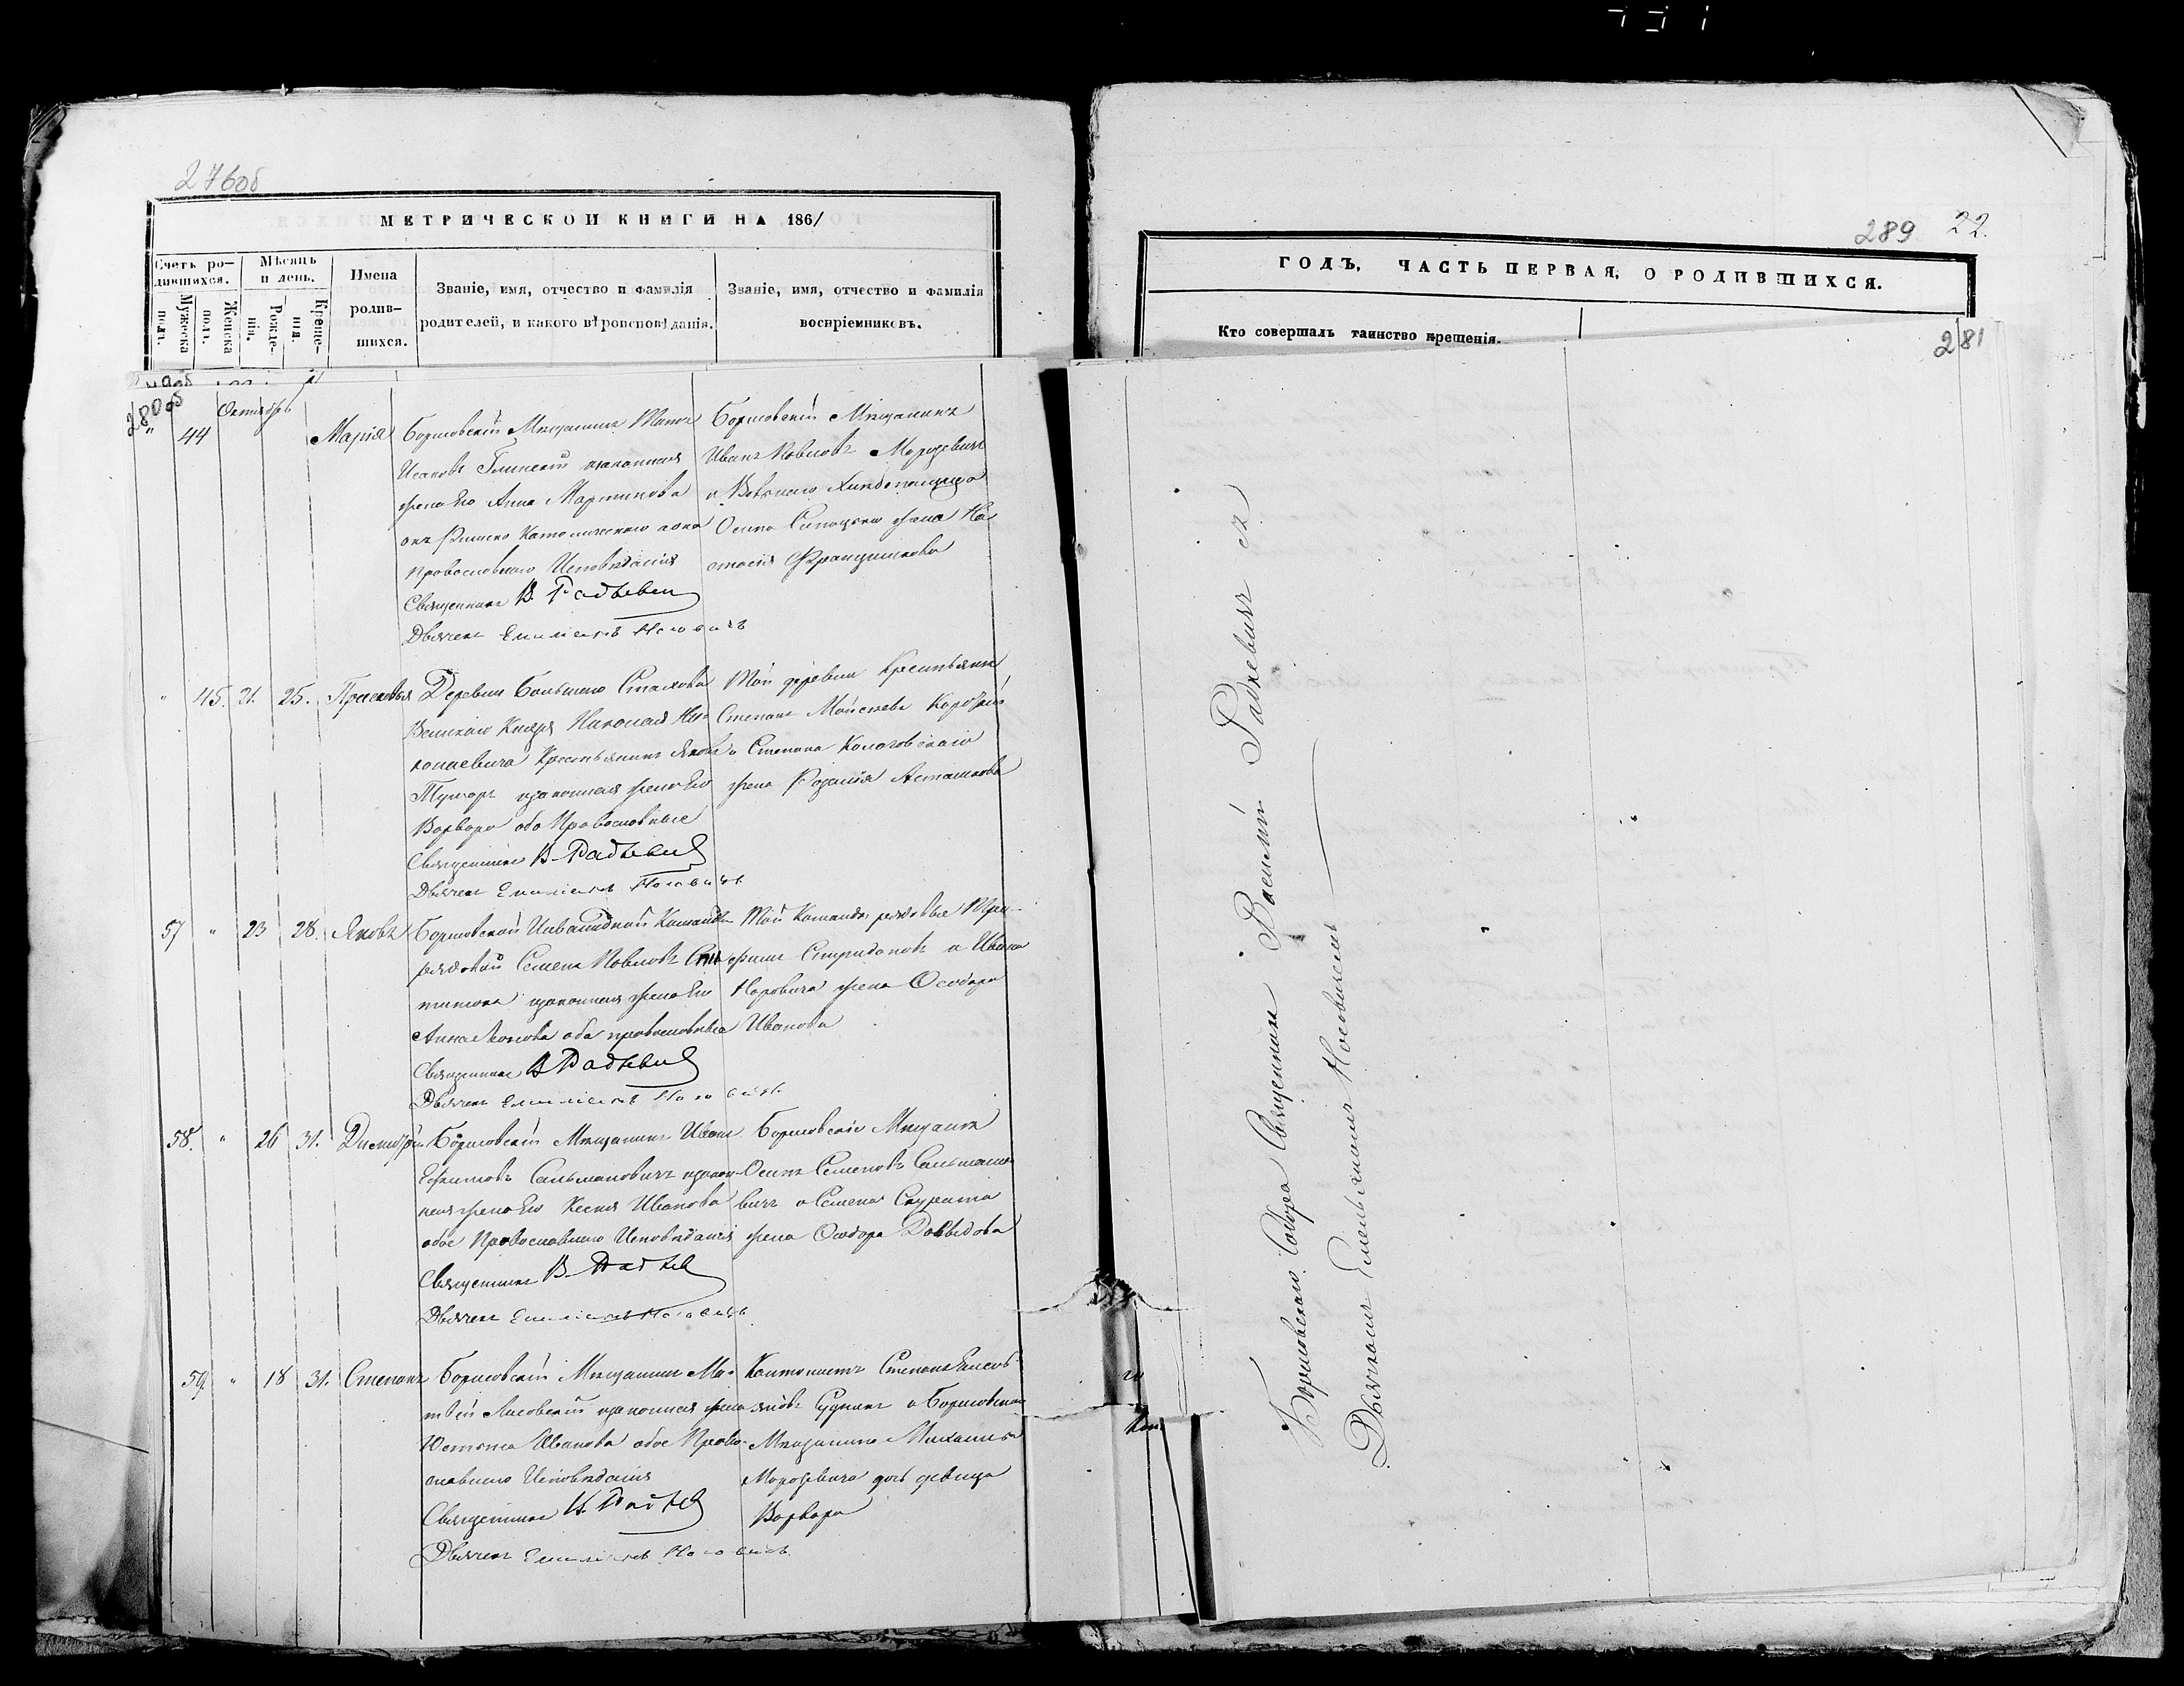 276об
МЕТРИЧЕСКОЙ КНИГИ НА 1861
Счетъ ро-
дившихся.
Мѣсяцъ
и день.
Имена
родив-
шихся.
Званіе, имя, отчество и фамилія
родителей, и какого вѣроисповѣданія.
Званіе, имя, отчество и фамилія
воспріемниковъ.
Мужеска
полъ.
Женска
полъ.
Рожде-
нія.
Креще-
нія.
280об
Октябрь
" 44 Марія Борисовскій Мѣщанинъ
Исаковъ Глинскій законная
жена Его Анна Мартинова
онъ Римско Католическаго а она
православнаго Исповѣданія
Священникъ В. Радкевич
Дьячекъ Емиліанъ Носовичъ
Борисовскій Мѣщанинъ
Иванъ Павловъ Морозевичъ
и
Осипа жена На
стасія Францишкова
" 45. 21. 25. Прасковья Деревни Большаго Стахова
Великаго Князя Николая Ни
колаевича Крестьянинъ Яковъ
законная жена Его
Варвара оба Православные
Священникъ В. Радкевич
Дьячекъ Емиліанъ Носовичъ
Той деревни Крестьянинъ
Степанъ Мойсеевъ
и Степана
жена Розалія Асташкова
57 " 23 28. Яковъ Борисовской Инвалидной Команды
рядовой Семенъ Павловъ
законная жена Его
Анна оба православные
Священникъ В. Радкевич
Дьячекъ Емиліанъ Носовичъ
Той Команды рядовые Три-
фонъ Спиридоновъ и Ивана
жена Ѳеодора
Иванова
58. " 26 31. Димитрій Борисовскій Мѣщанинъ Иванъ
Ефимовъ Сальмановичъ закон
ная жена Его Ксенія Иванова
обое Православнаго Исповѣданія
Священникъ В. Радкев
Дьячекъ Емиліанъ Носовичъ
Борисовскіе Мѣщане
Осипъ Семеновъ Сальмано
вичъ и Семена
жена Ѳеодора Давыдова
59. " 18 31. Степанъ Борисовскій Мѣщанинъ Ма-
твѣй Лисовскій законная жена
Иванова обое Право-
славнаго Исповѣданія
Священникъ В. Радкев
Дьячекъ Емиліанъ Носовичъ
Кантонистъ Степанъ
и Борисовскаго
Мѣщанина Михаила
Морозевича дочь девица
Варвара
289 22.
ГОДЪ, ЧАСТЬ ПЕРВАЯ, О РОДИВШИХСЯ.
Кто совершалъ таинство крещенія.
281
Борисовскаго Собора Священникъ Василій Радкевичъ съ
Дьячкомъ Емельяномъ Носовичемъ